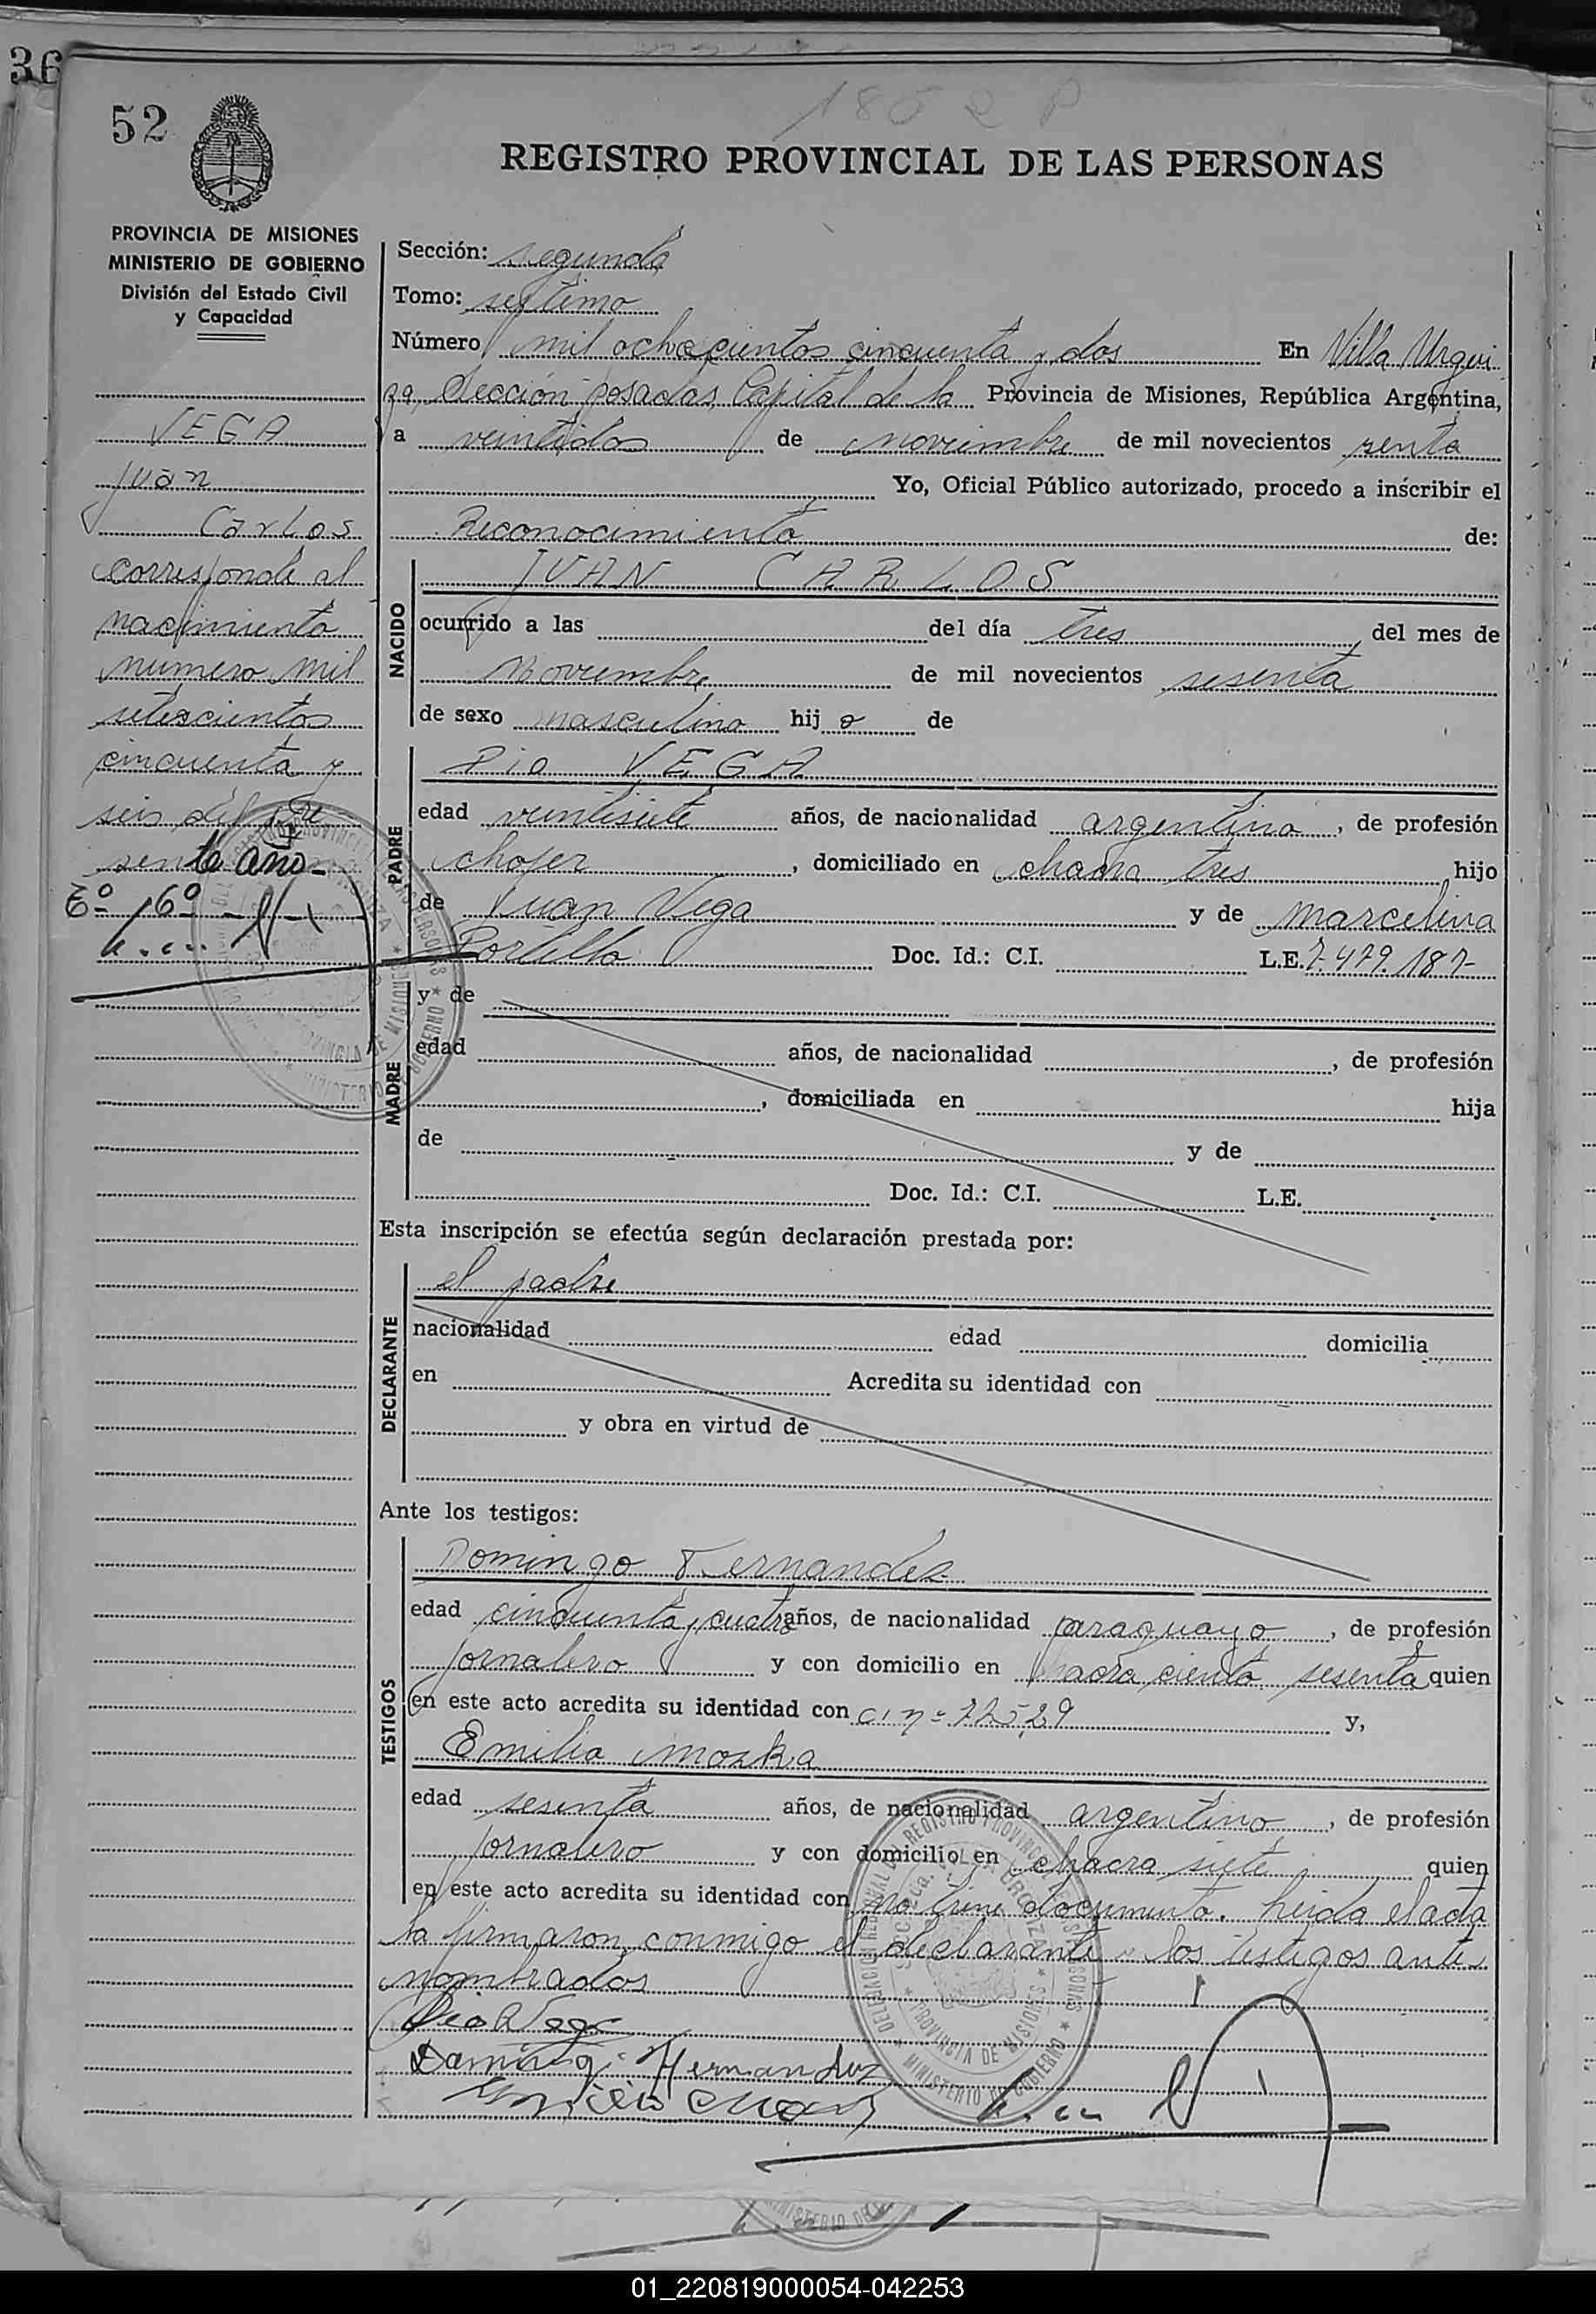 36
52
1852 P
REGISTRO PROVINCIAL DE LAS PERSONAS
PROVINCIA DE MISIONES
MINISTERIO DE GOBIERNO
División del Estado Civil
y Capacidad
VEGA
Juan
Carlos
corresponde al
nacimiento
numero mil
setescientos
cincuenta y
seis del pre
sente año-
Tº 6º
Sección: segunda
Tomo: septimo
Número mil ochocientos cincuenta y dos En Villa Urqui
za, Sección posadas, Capital de la Provincia de Misiones, República Argentina,
a veintidos de noviembre de mil novecientos senta
Yo, Oficial Público autorizado, procedo a inscribir el
Reconocimiento de:
NACIDO
JUAN CARLOS
ocurrido a las del día tres, del mes de
Noviembre de mil novecientos sesenta
de sexo masculino hijo de
PADRE
Pio VEGA
edad veintisiete años, de nacionalidad argentino, de profesión
chofer, domiciliado en chacra tres hijo
de Juan Vega y de Marcelina
Portillo Doc. Id.: C.I. L.E. 7.479.187-
MADRE
y de
edad años, de nacionalidad , de profesión
, domiciliada en hija
de y de
Doc. Id.: C.I. L.E.
Esta inscripción se efectúa según declaración prestada por:
DECLARANTE
el padre
nacionalidad edad domicilia
en Acredita su identidad con
y obra en virtud de
Ante los testigos:
TESTIGOS
Domingo Fernandez
edad cincuenta y cuatro años, de nacionalidad paraguayo, de profesión
jornalero y con domicilio en chacra ciento sesenta quien
en este acto acredita su identidad con y,
Emilio
edad sesenta años, de nacionalidad argentino, de profesión
jornalero y con domicilio en chacra siete, quien
en este acto acredita su identidad con no tiene documento. heida el acta
la firmaron conmigo el declarante y los testigos antes
nombrados
Pio Vega
Domingo Hernandez
MINISTERIO DE
01_220819000054-042253